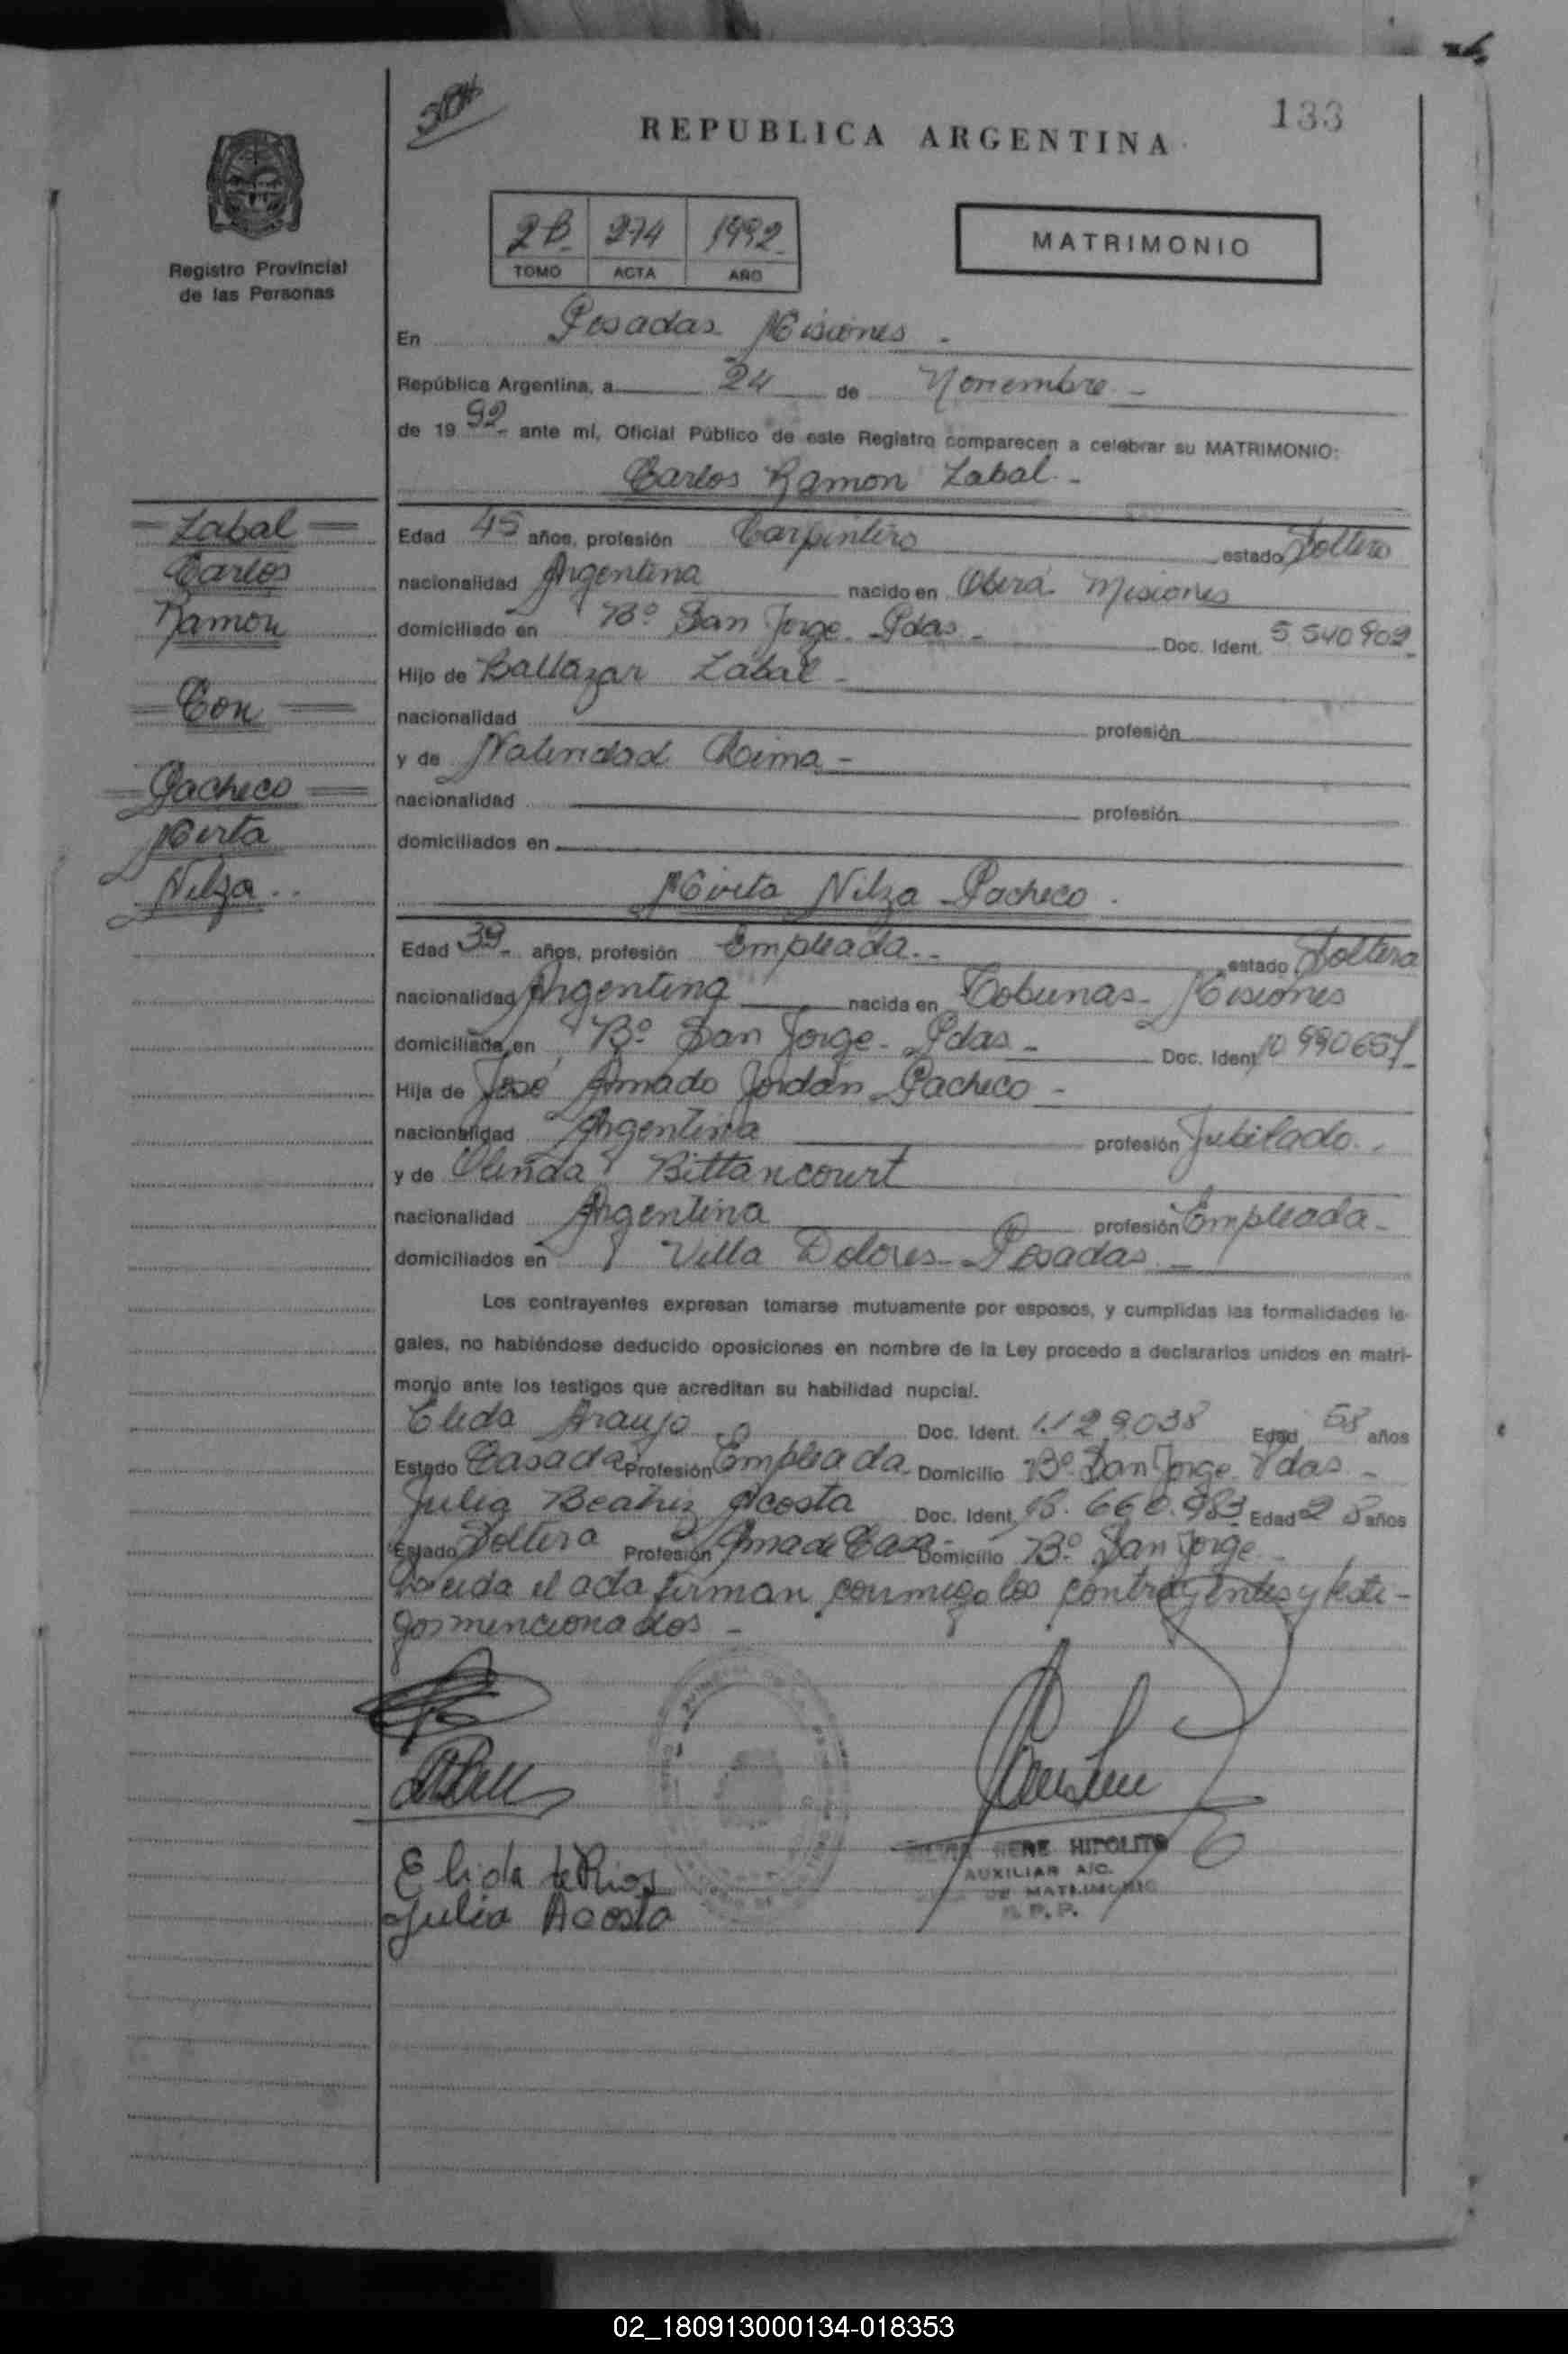 384
133
REPUBLICA ARGENTINA
Registro Provincial
de las Personas
2B 274 1992
TOMO ACTA AÑO
MATRIMONIO
En Posadas Misiones
República Argentina, a 24 de Noviembre
de 1992 ante mí, Oficial Público de este Registro comparecen a celebrar su MATRIMONIO:
Carlos Ramon Zabal
Zabal
Carlos
Ramon
Con
Pacheco
Mirta
Nilza
Edad 45 años, profesión Carpintero estado Soltero
nacionalidad Argentina nacido en Oberá Misiones
domiciliado en Bº San Jorge Pdas Doc. Ident. 5 540 902
Hijo de Baltazar Zabal
nacionalidad profesión
y de Natividad
nacionalidad profesión
domiciliados en
Mirta Nilza Pacheco
Edad 39 años, profesión Empleada estado Soltera
nacionalidad Argentina nacida en Misiones
domiciliada en Bº San Jorge Pdas Doc. Ident.
Hija de José Amado Jordán Pacheco
nacionalidad Argentina profesión Jubilado
y de Olinda Bittancourt
nacionalidad Argentina profesión Empleada
domiciliados en Villa Dolores Posadas
Los contrayentes expresan tomarse mutuamente por esposos, y cumplidas las formalidades le-
gales, no habiéndose deducido oposiciones en nombre de la Ley procedo a declararlos unidos en matri-
monio ante los testigos que acreditan su habilidad nupcial.
Elida Araujo Doc. Ident. 1.129.038 Edad 58 años
Estado Casada Profesión Empleada Domicilio Bº San Jorge Pdas
Julia Beatriz Acosta Doc. Ident. 660.983 Edad 28 años
Estado Soltera Profesión Ama de Casa Domicilio Bº San Jorge
Leida el acta firman conmigo los contrayentes y testi-
gos mencionados
Elida de Rios
Julia Acosta
RENE HIPOLITO
AUXILIAR A/C.
DE MATRIMONIO
R. P. P.
02_180913000134-018353